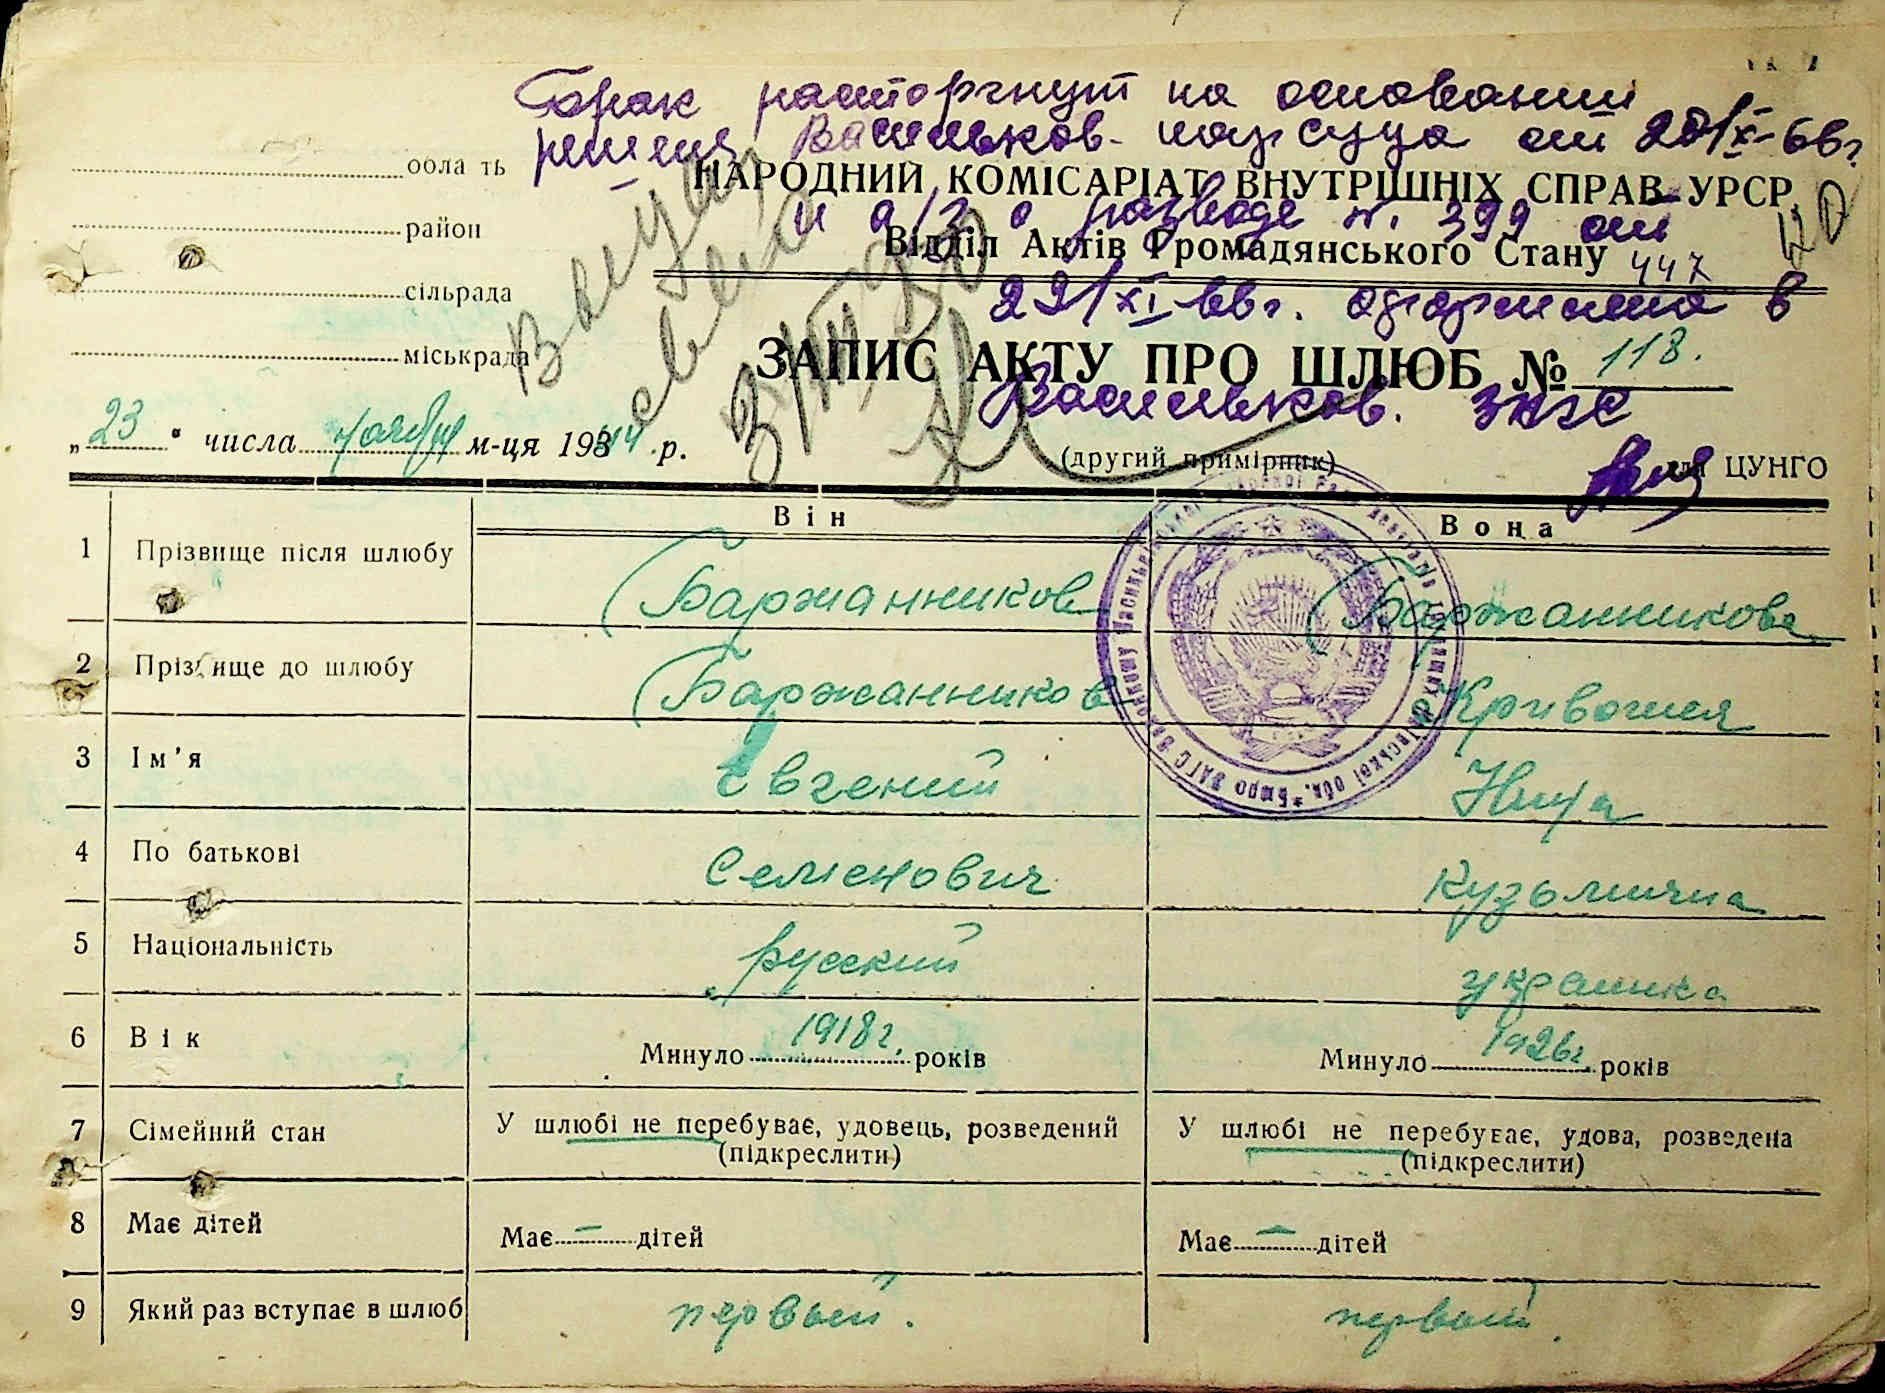 Брак расторгнут на основании
решения Васильков. нарсуда от 20/XI-66г.
область
НАРОДНИЙ КОМІСАРІАТ ВНУТРІШНІХ СПРАВ УРСР
и а/з о разводе № 399 от
район
Відділ Актів Громадянського Стану
447
сільрада
22/XI-66г. в
міськрада
ЗАПИС АКТУ ПРО ШЛЮБ № 118.
Васильков. ЗАГС
„23" числа ноября м-ця 1944 р.
(другий примірник)
для ЦУНГО
Він Вона
1 Прізвище після шлюбу Баржанников Баржанникова
2 Прізвище до шлюбу Баржанников Кривошея
3 Ім'я Евгений Нина
4 По батькові Семенович Кузьминична
5 Національність русский украинка
6 Вік Минуло 1918г. років Минуло 1926г. років
7 Сімейний стан У шлюбі не перебуває, удовець, розведений У шлюбі не перебуває, удова, розведена
(підкреслити) (підкреслити)
8 Має дітей Має — дітей Має — дітей
9 Який раз вступає в шлюб первый. первый.